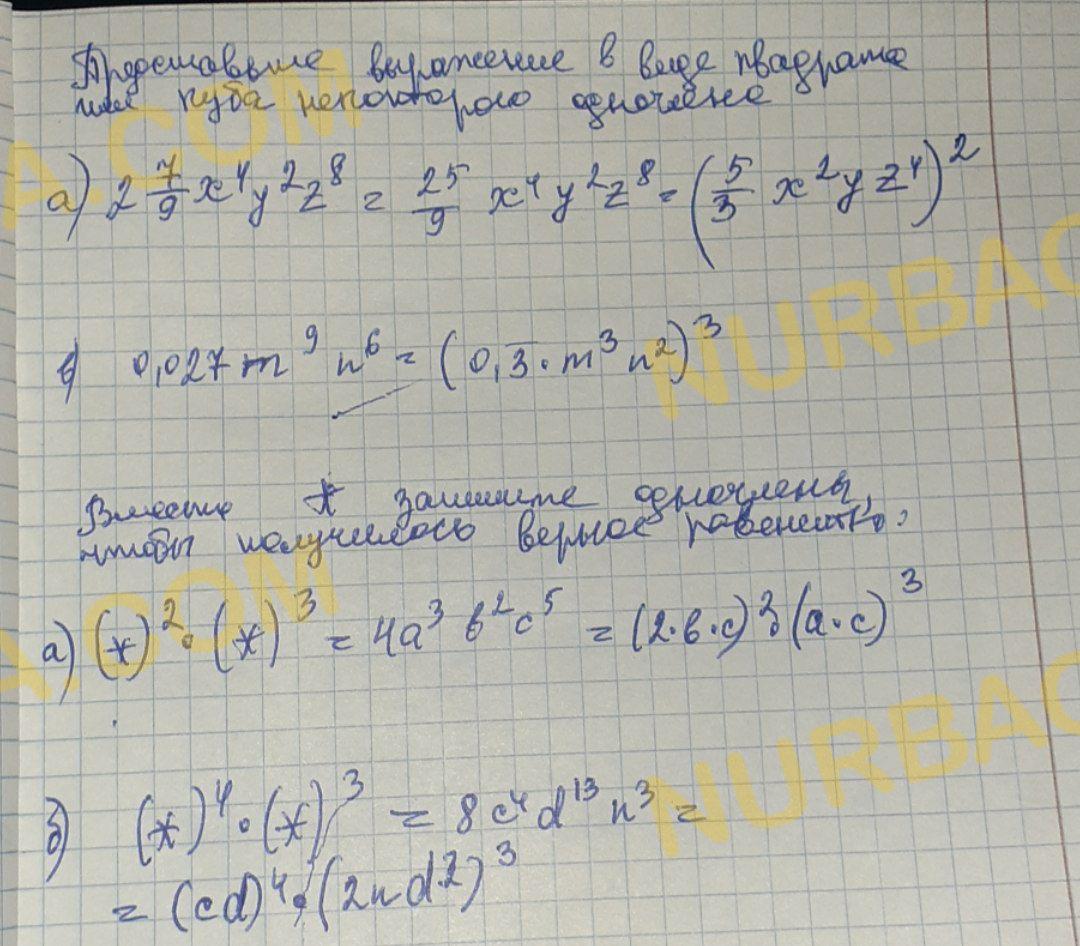 Представьте выражение в виде квадрата
или куба некоторого одночлена
а) 2 7/9 x⁴y²z⁸ = 25/9 x⁴y²z⁸ = (5/3 x²yz⁴)²
в) 0,027m⁹n⁶ = (0,3·m³n²)³
Вместо * запишите одночлены,
чтобы получилось верное равенство:
а) (*)²·(*)³ = 4a³b²c⁵ = (2·b·c)²·(a·c)³
б) (*)⁴·(*)³ = 8c⁴d¹³n³ =
= (cd)⁴·(2nd²)³
A.COM
NURBAC
A.COM
NURBAC